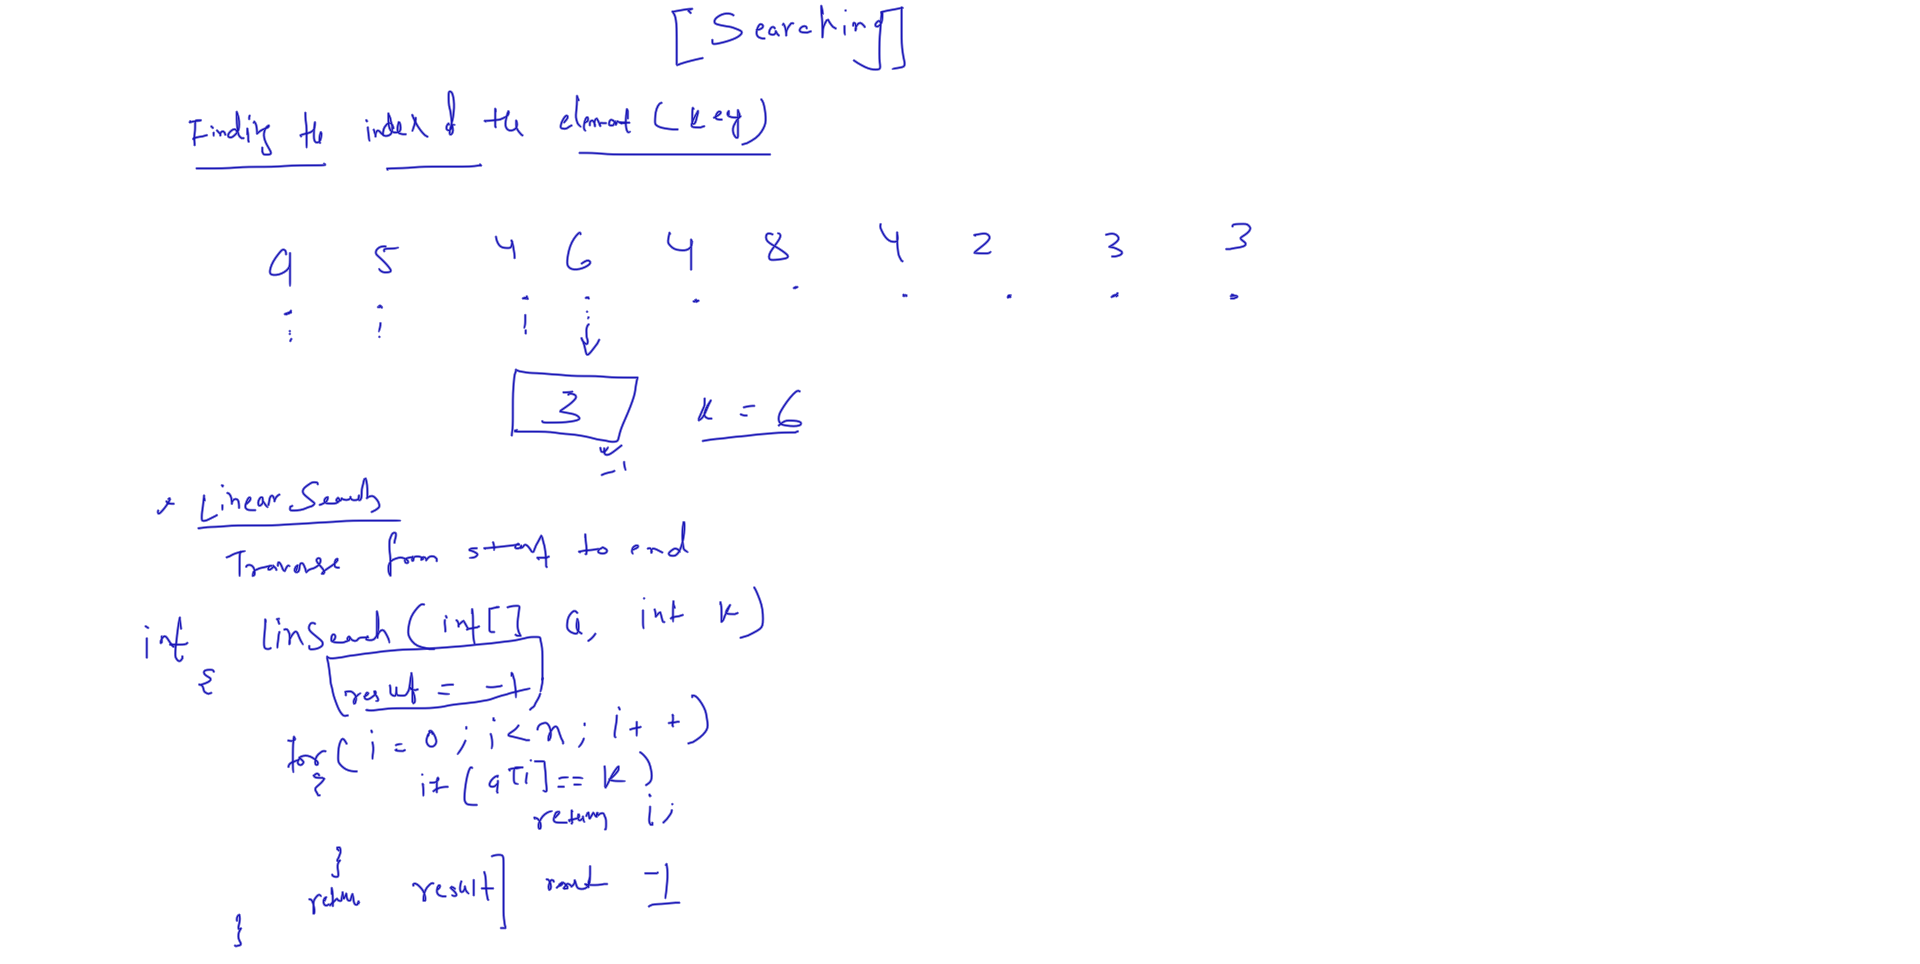 [Searching]
Finding the index of the element (key)
9 5 4 6 4 8 4 2 3 3
3 k = 6
-1
* Linear Search
Traverse from start to end
int linSearch (int[] a, int k)
{
result = -1
for( i = 0 ; i < n ; i + + )
{
if ( a[i] == k )
return i;
}
return result]
-1
}